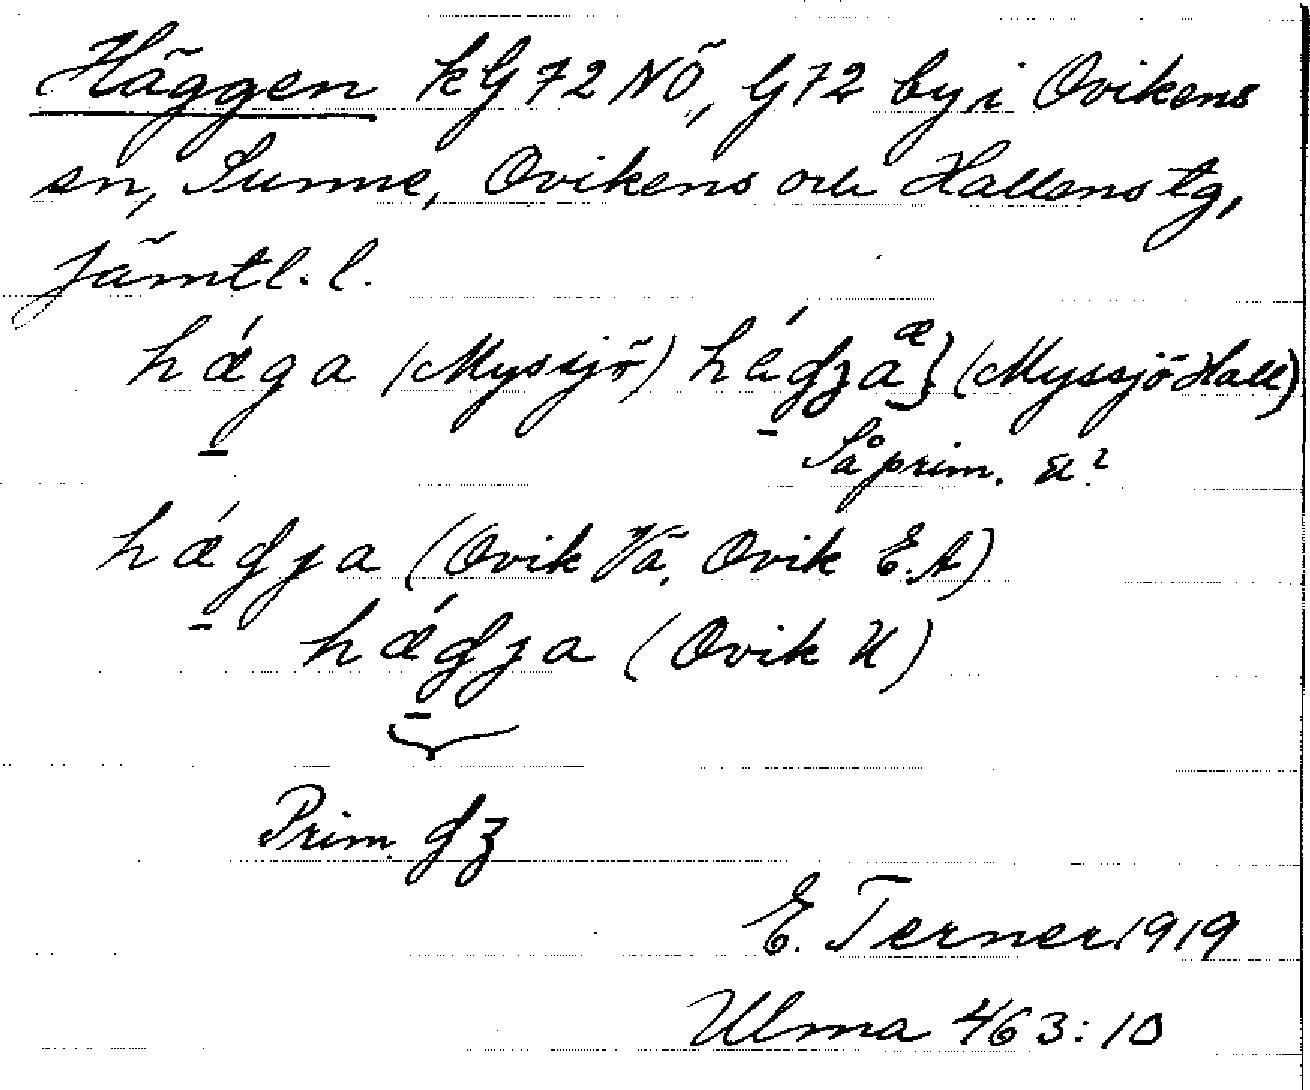 Häggen kG72NÖ, G72 by i Ovikens
sn, Sunne, Ovikens och Hallens tg,
Jämtl. l.
hǽga (Myssjö) hǽgʒa æ} (Myssjö Hall)
Så prim. æ?
hǽgja (Ovik Vä, Ovik E.A)
hǽgja (Ovik U)
Prim. gʒ
E. Terner 1919
Ulma 463:10